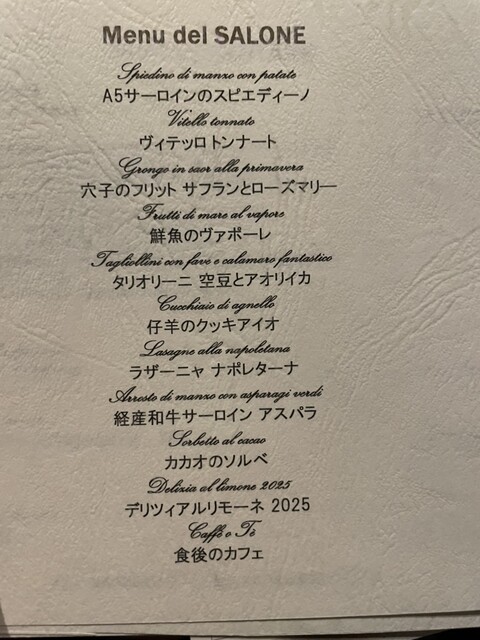 Menu del SALONE
Spiedino di manzo con patate
A5サーロインのスピエディーノ
Vitello tonnato
ヴィテッロ トンナート
Grongo in saor alla primavera
穴子のフリット サフランとローズマリー
Frutti di mare al vapore
鮮魚のヴァポーレ
Tagliollini con fave e calamaro fantastico
タリオリーニ 空豆とアオリイカ
Cucchiaio di agnello
仔羊のクッキアイオ
Lasagne alla napoletana
ラザーニャ ナポレターナ
Arrosto di manzo con asparagi verdi
経産和牛サーロイン アスパラ
Sorbetto al cacao
カカオのソルベ
Delizia al limone 2025
デリツィアルリモーネ 2025
Caffè o Tè
食後のカフェ